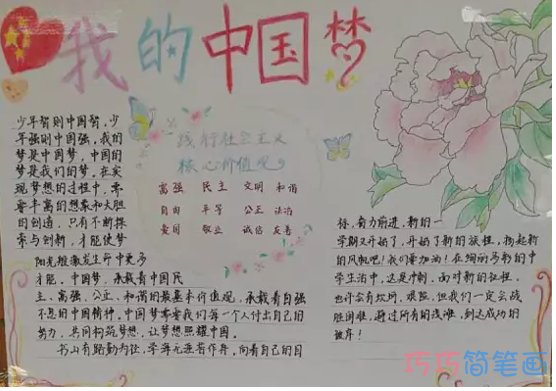 我的中国梦
少年智则中国智，少
年强则中国强，我们
梦是中国梦，中国的
梦是我们的梦，在实
现梦想的过程中，需
要丰富的想象和大胆
的创造，只有不断探
索与创新，才能使梦
阳光般散发生命中更多
才能，中国梦，承载着中国民
主、富强、公正、和谐的最基本价值观，承载着自强
不息的中国精神，中国梦需要我们每个人付出自己的
努力，共同构筑梦想，让梦想照耀中国。
书山有路勤为径，学海无涯苦作舟，向着自己的目
践行社会主义
核心价值观
富强 民主 文明 和谐
自由 平等 公正 法治
爱国 敬业 诚信 友善
标，奋力前进，新的一
学期又开始了，开始了新的旅程，扬起新
的风帆吧！我们要加油！在绚丽多彩的中
学生活中，这是冲刺，面对新的征程，
也许会有坎坷，艰险，但我们一定会战
胜困难，越过所有的浅滩，到达成功的
彼岸！
巧巧简笔画